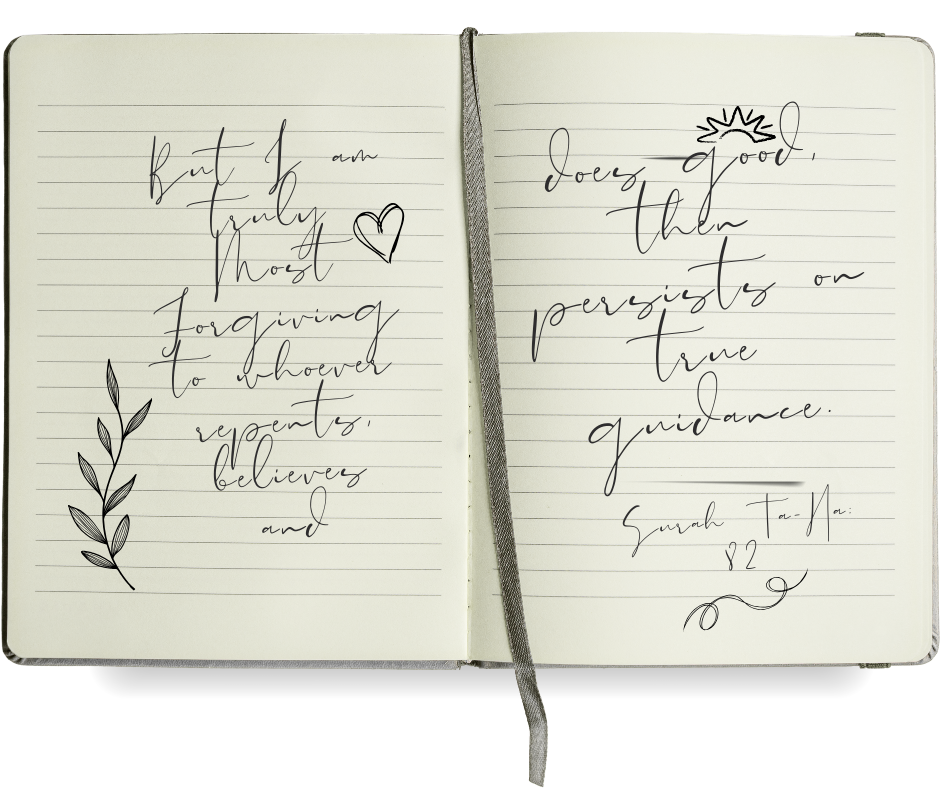 But I am
truly
Most
Forgiving
to whoever
repents,
believes
and
does good,
then
persists on
true
guidance.
Surah Ta-Ha:
82